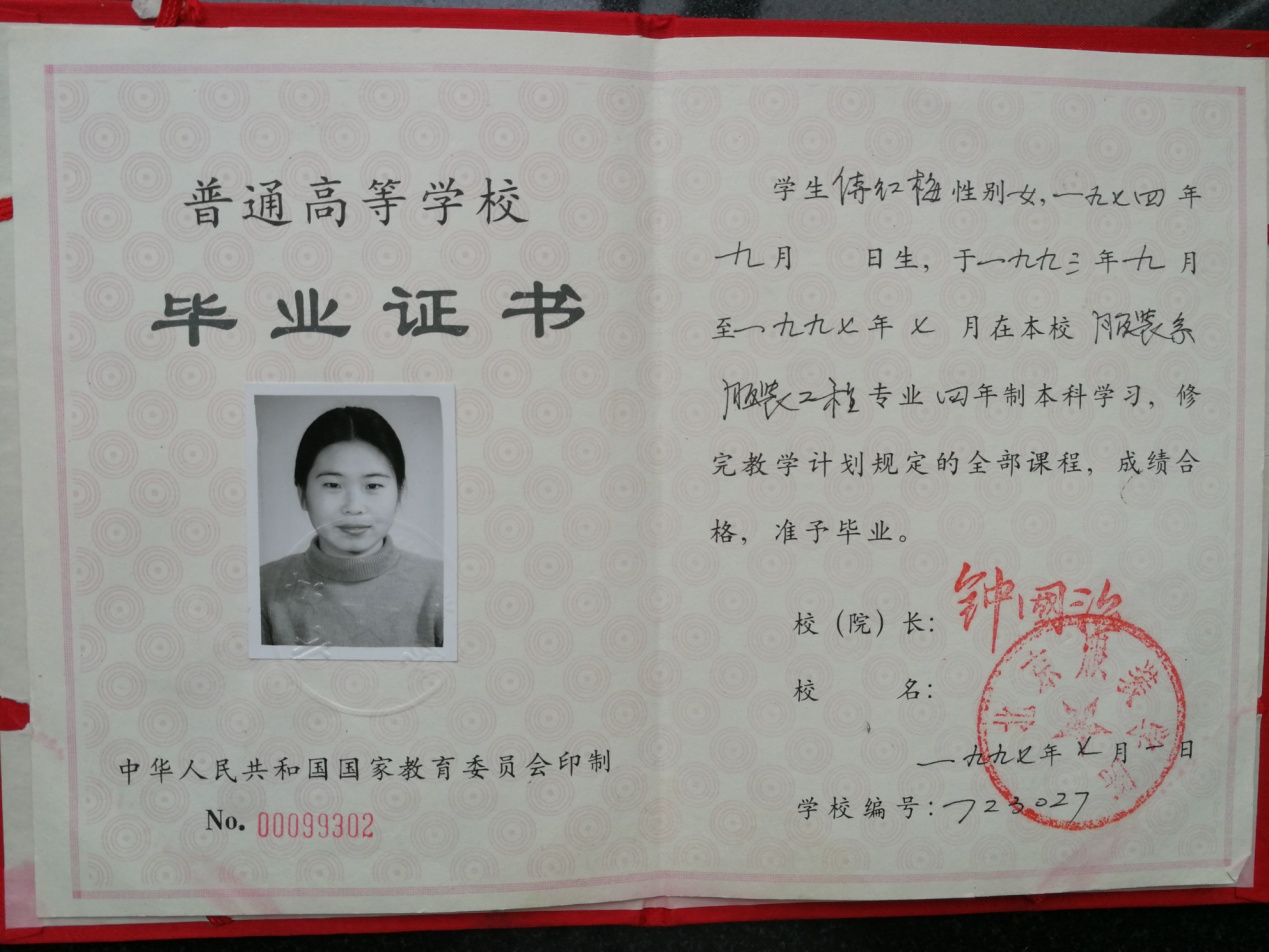 普通高等学校
毕业证书
中华人民共和国国家教育委员会印制
No. 00099302
学生傅红梅性别女,一九七四年
九月 日生,于一九九三年九月
至一九九七年七月在本校服装系
服装工程专业四年制本科学习,修
完教学计划规定的全部课程,成绩合
格,准予毕业。
校(院)长:钟国治
校 名:
北京服装学院
一九九七年七月一日
学校编号:723027